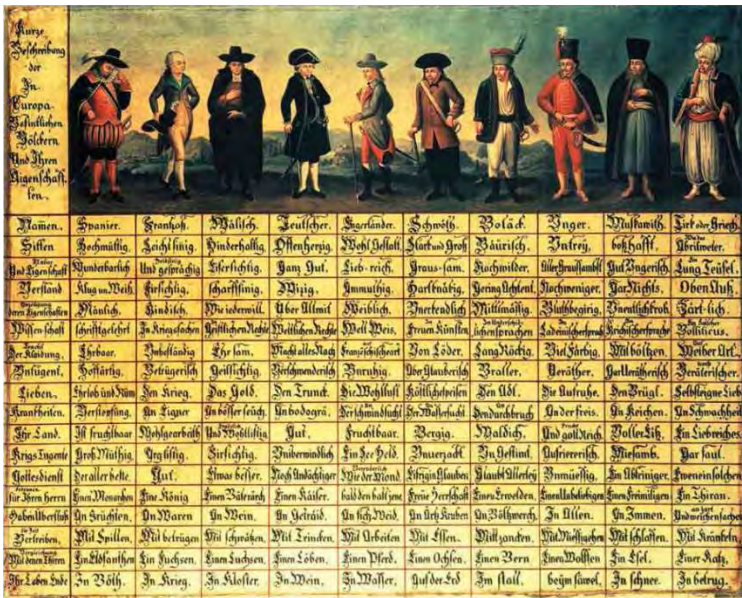 Kurze
Beschreibung
der
In
Europa
Befintlichen
Völckern
Und Ihren
Aigenschaff
ten.
Namen. Spanier. Frantzoß. Wälisch. Teutscher. Engerländer. Schwöth. Boläck. Unger. Muskawith. Tirk oder Griech.
Sitten Hochmüttig. Leicht sinig. Hinderhaltig Offenherzig. Wohl Gestalt. Stark und Groß Bäurisch. Untrey. boßhafft.
Und Eigenschaft Wunderbarlich Und gesprächig Eifersichtig. Ganz Gut. Lieb-reich. Graus-sam. Gut Ungerisch. Lung Teüfel.
Verstand Klug un Weiß. Firsichtig. scharffsinig. Wizig. Ammuthig. Hartknäbig. Gering Achtent. Nochweniger. Gar Nichts. Oben Auß.
Mänlich. Kindisch. Wie iederwill. Über Allmit Weiblich. Unerkendlich Mittlmäsig. Bluthbegirig. Zärt-lich.
Wissenschaft schrifftgelehrt In Kriegssachen Geistlichen Rechte Weltlichen Rechte Welt Weis. Freuen Künsten
Der Klaidung. Ehrbaar. Unbeständig Ehrsam. Macht alles Nach Von Löder. Lang Röckig. Viel Färbig. Mit böltzen. Weiber Art.
Untugent. Hoffärtig. Betrügerisch Geillsichtig. Verschwenderisch Unruhig. Über Glauberisch Braller. Veräther. Gar Verätherisch Verätterischer.
Lieben. Ehrlob und Rüm Den Krieg. Das Gold. Den Trunck. Die Wohllust Köstliche speisen Den Adl. Die Aufruhe. Den Brügl. Selbsteigne Lieb
Krankheiten. Verstopfung. An Eigner An bösser seüch. An bodogrä. Der schwindsucht Der Wassersucht Den durchbruch An der freis. An Keichen. An Schwachheit
Ihr Land. Ist fruchtbaar Wohlgearbeith Und Wohllistig Gut. Fruchtbaar. Bergig. Waldich. Und gold Reich. Voller Eiß. Ein Liebreiches
Krigs Tugente Groß Müthig Argistig. Firsichtig. Uniberwindlich Ein See Held. Unverzackt Un Gestimt. Aufriererisch. Miesamb. Gar faul.
Gottesdienst Der aller beste. Gut. Etwas besser. Noch Andächtiger Wie der Mond. Eifrig in Glauben Glaubt Allerley Unmüessig. Ein Abtriniger. Eweneinsolchen
für Ihren herrn Einen Monarchen Eine König Einen Käiser. bald den bald jene Freüe Herrschaft Einen Erwelden. Einen Unbeliebigen Einen Freimiligen Ein Thiran.
Haben Überfluß An Früchten. An Waren An Wein. An Getraid. An fich Weid. An Ärtz Kruben An Böltzwerch. In Allen. An Immen.
Vertreiben. Mit Spillen. Mit betrügen Mit schwätzen. Mit Trincken. Mit Arbeiten Mit Essen. Mit zancken. Mit Miessigehen Mit schlaffen. Mit Kränkeln.
Mit denen Thiren Ein Elofanthen Ein Fuchsen. Einen Luchsen. Einen Löben. Einen Pferd. Einen Ochsen. Einen Bern Einen Wolffen Ein Esel. Einer Katz.
Ihr Leben Ende In Böth. In Krieg. In Kloster. In Wein. In Wasser. Auf der Erd Im stall. beym säwel. In schnee. In betrug.